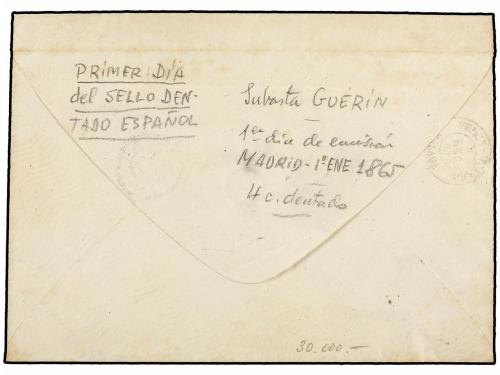 PRIMER DÍA
del SELLO DEN-
TADO ESPAÑOL
Subasta GUERIN
1er día de emisión
MADRID - 1º ENE 1865
4 c. dentado
30.000.-